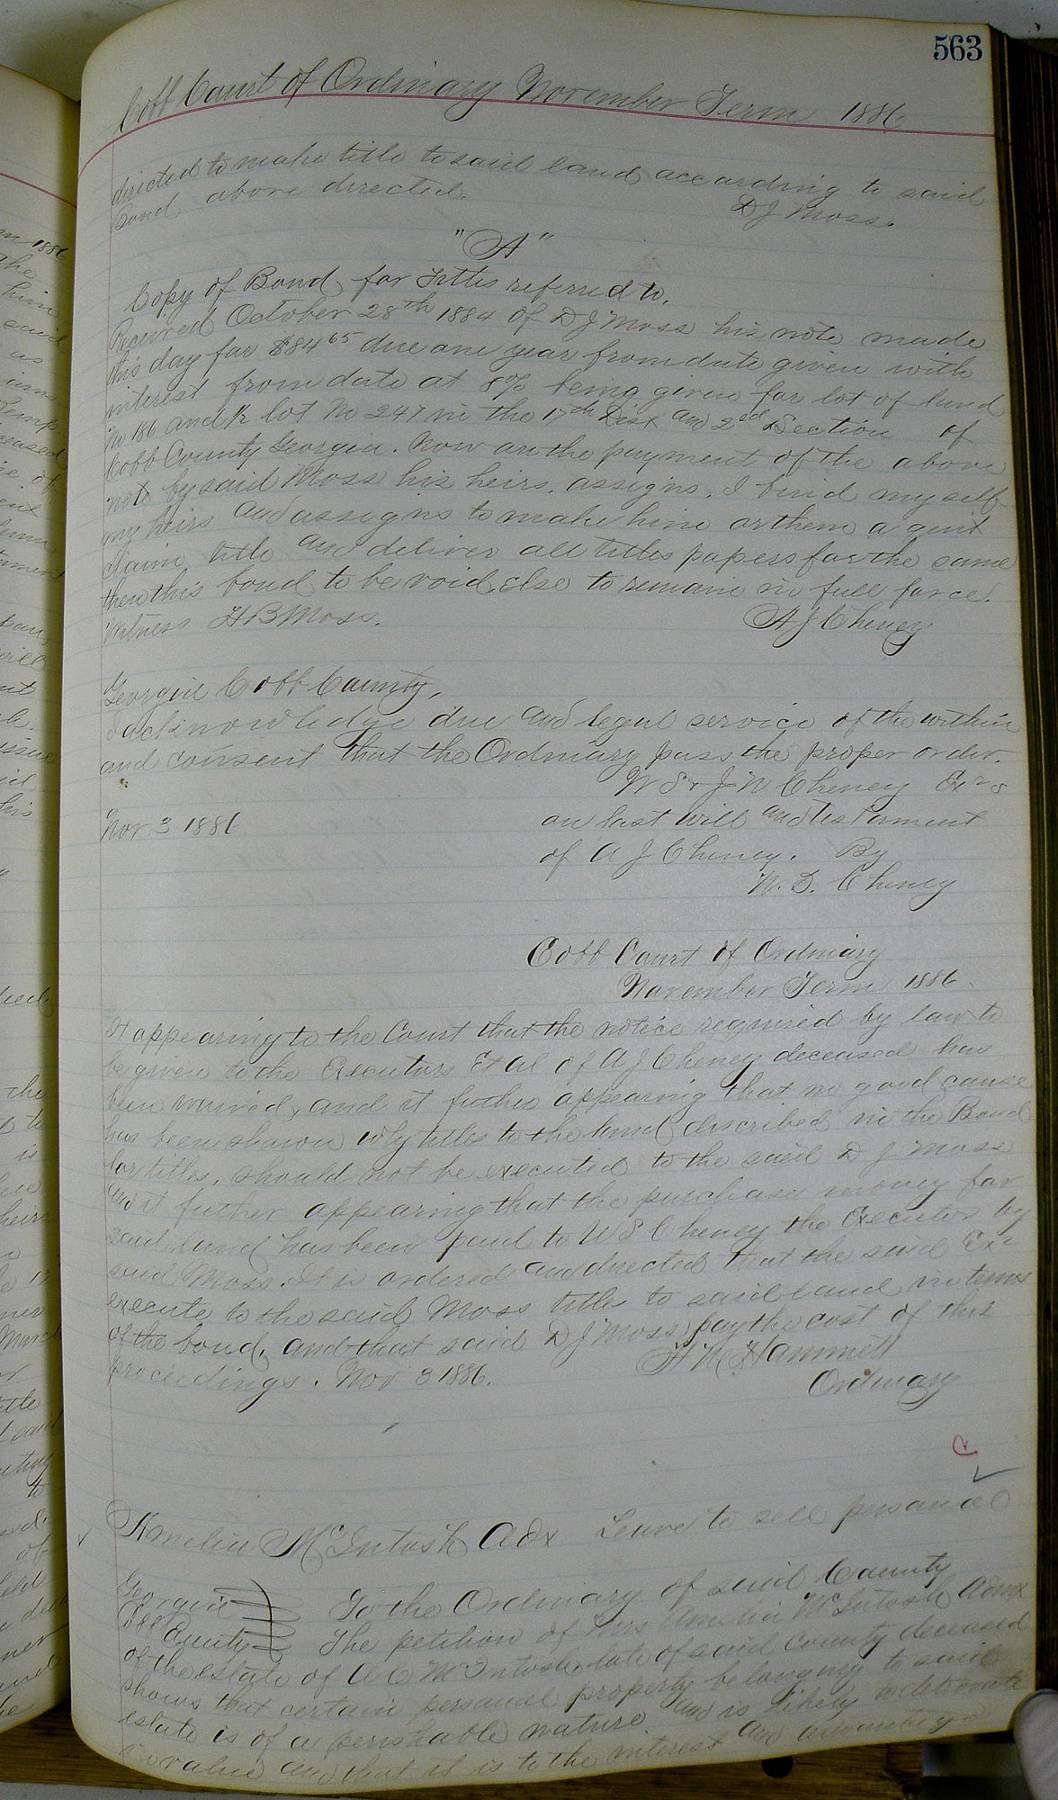 563
Cobb Court of Ordinary November Term 1886
directed to make title to said land according to said
bond above directed.
D J Moss.
"A"
Copy of Bond for Titles referred to.
Received October 28th 1884 of D J Moss his note made
this day for $84 65 due one year from date given with
interest from date at 8% being given for lot of land
No 186 and ½ lot No 247 in the 17th Dist and 2nd Section of
Cobb County Georgia. Now on the payment of the above
note by said Moss his heirs, assigns, I bind myself
my heirs and assigns to make him or them a quit
claim title and deliver all titles papers for the same
then this bond to be void, else to remain in full force.
Witness H B Moss.
A J Cheney
Georgia Cobb County,
I acknowledge due and legal service of the within
and consent that the Ordinary pass the proper order.
W S & J N Cheney Exrs
Nov 3 1886
on last will and testament
of A J Cheney. By
W. S. Cheney
Cobb Court of Ordinary
November Term 1886.
It appearing to the Court that the notice required by law to
be given to the Executors Et al of A J Cheney deceased has
been waived, and it futher appearing that no good cause
has been shown why titles to the land described in the Bond
for titles, should not be executed to the said D J Moss
and it futher appearing that the purchase money for
said land has been paid to W S Cheney the Executor by
said Moss. It is ordered and directed that the said Exr
execute to the said Moss titles to said land in terms
of the bond, and that said D J Moss pay the cost of this
proceedings. Nov 3 1886.
H M Hammett
Ordinary
Amelia McIntosh Adx Leave to sell personal
Georgia
Cobb County
To the Ordinary of said County
The petition of Mrs Amelia McIntosh Admx
of the estate of A C McIntosh late of said County deceased
shows that certain personal property belonging to said
estate is of a perishable nature and is likely to deteriorate
in value and that it is to the interest and advantage